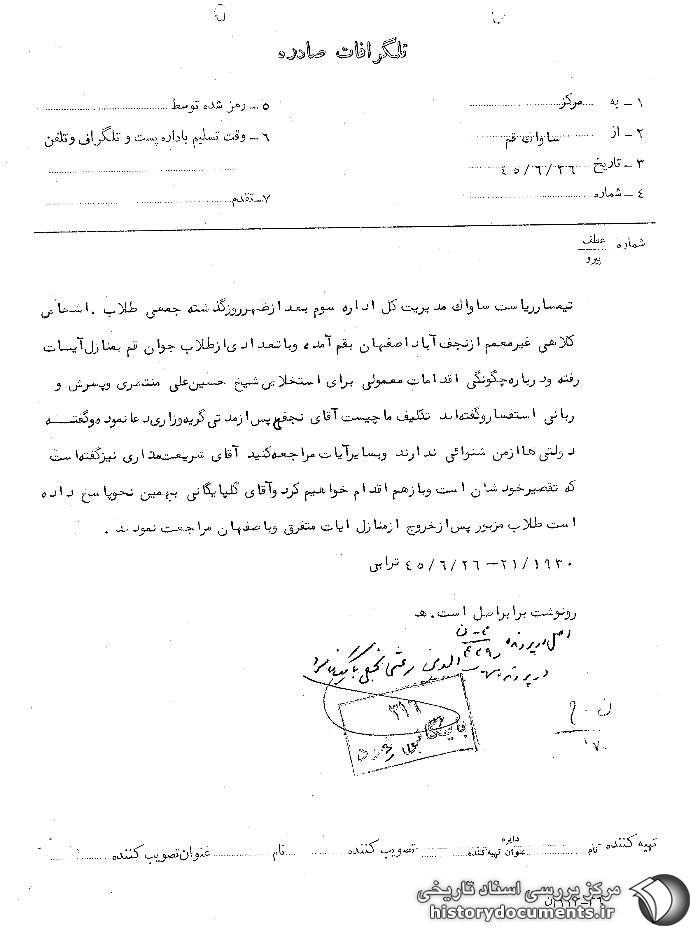 تلگرافات صادره
۱ـ به مرکز
۲ـ از ساواک قم
۳ـ تاریخ ۴۵/۶/۲۶
۴ـ شماره
۵ـ رمز شده توسط
۶ـ وقت تسلیم باداره پست و تلگراف و تلفن
۷ـ تقدم
شماره عطف
پیرو
تیمسار ریاست ساواک مدیریت کل اداره سوم بعد ازظهر روز گذشته جمعی طلاب . اشخاص
کلاهی غیرمعمم ازنجف آباد اصفهان بقم آمده وباتعدادی ازطلاب جوان قم بمنازل آیات
رفته ودرباره چگونگی اقدامات معمولی برای استخلاص شیخ حسین علی منتظری وپسرش و
ربانی استفسار وگفته‌اند تکلیف ماچیست آقای نجفی پس ازمدتی گریه وزاری دعا نموده وگفتـــه
دولتی ها ازمن شنوائی ندارند وبسایر آیات مراجعه کنید آقای شریعتمداری نیز گفته است
که تقصیر خودشان است وبازهم اقدام خواهیم کرد وآقای گلپایگانی بهمین نحو پاسخ داده
است طلاب مزبور پس از خروج ازمنازل آیات متفرق وباصفهان مراجعت نمودند .
۲۱/۱۹۳۰ – ۴۵/۶/۲۶ ترابی
رونوشت برابر اصل است . هـ
اصل در پرونده
در پرونده شهاب الدین مرعشی نجفی بایگانی شود
۳۱۶
تهیه کننده نام دایره عنوان تهیه کننده تصویب کننده نام عنوان تصویب کننده
مرکز بررسی اسناد تاریخی
historydocuments.ir